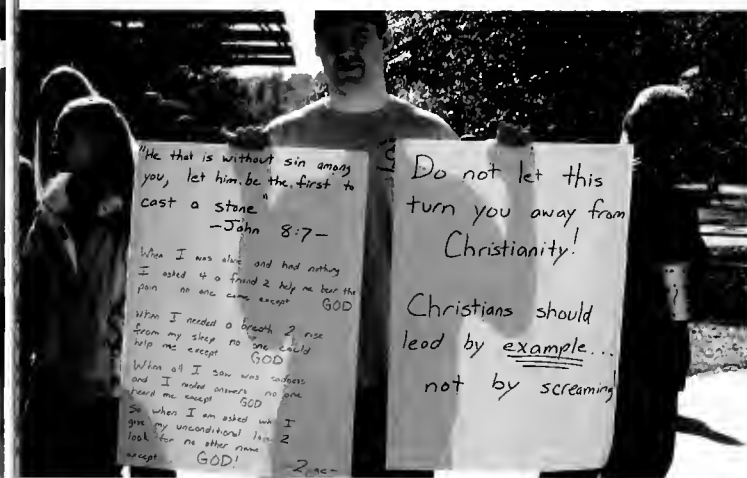 "He that is without sin among
you, let him be the first to
cast a stone"
-John 8:7-
When I was alive and had nothing
I asked 4 a friend 2 help me bear the
pain no one came except GOD
When I needed a breath 2 rise
from my sleep no one could
help me except GOD
When all I saw was sadness
and I needed answers no one
heard me except GOD
So when I am asked who I
give my unconditional love 2
look for no other name
except GOD!
-2pac-
Do not let this
turn you away from
Christianity!
Christians should
lead by example...
not by screaming!